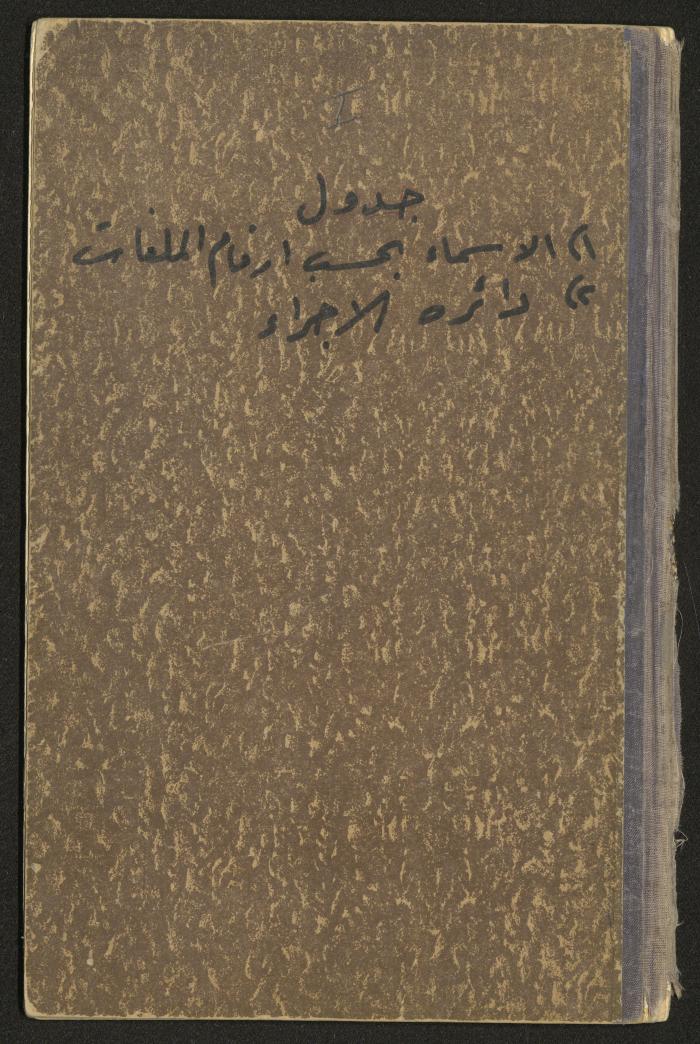 I
جدول
١) الاسماء بحسب ارقام الملفات
٢) دائره الاجراء